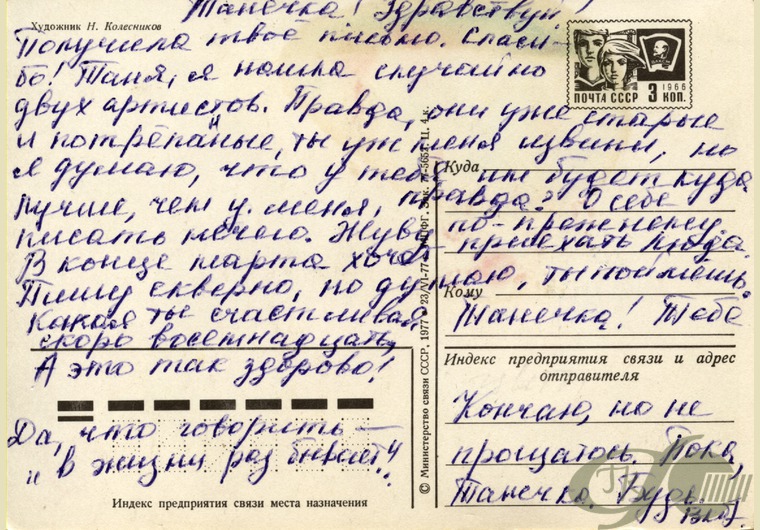 Танечка! Здравствуй!
Художник Н. Колесников
Получила твоё письмо. Спаси-
бо! Таня, я нашла случайно
двух артистов. Правда, они уже старые
и потрёпаные, ты уж меня извини, но
я думаю, что у тебя им будет куда
лучше, чем у меня, правда? О себе
писать нечего. Живу по-прежнему.
В конце марта хочу приехать сюда.
Пишу скверно, но думаю, ты поймёшь.
Какая ты счастливая, Танечка! Тебе
скоро восемнадцать,
А это так здорово!
Да, что говорить —
"в жизни раз бывает"...
Кончаю, но не
прощаюсь. Пока,
Танечка.
1966
ПОЧТА СССР 3 КОП.
Куда
Кому
Индекс предприятия связи и адрес
отправителя
Индекс предприятия связи места назначения
© Министерство связи СССР, 1977